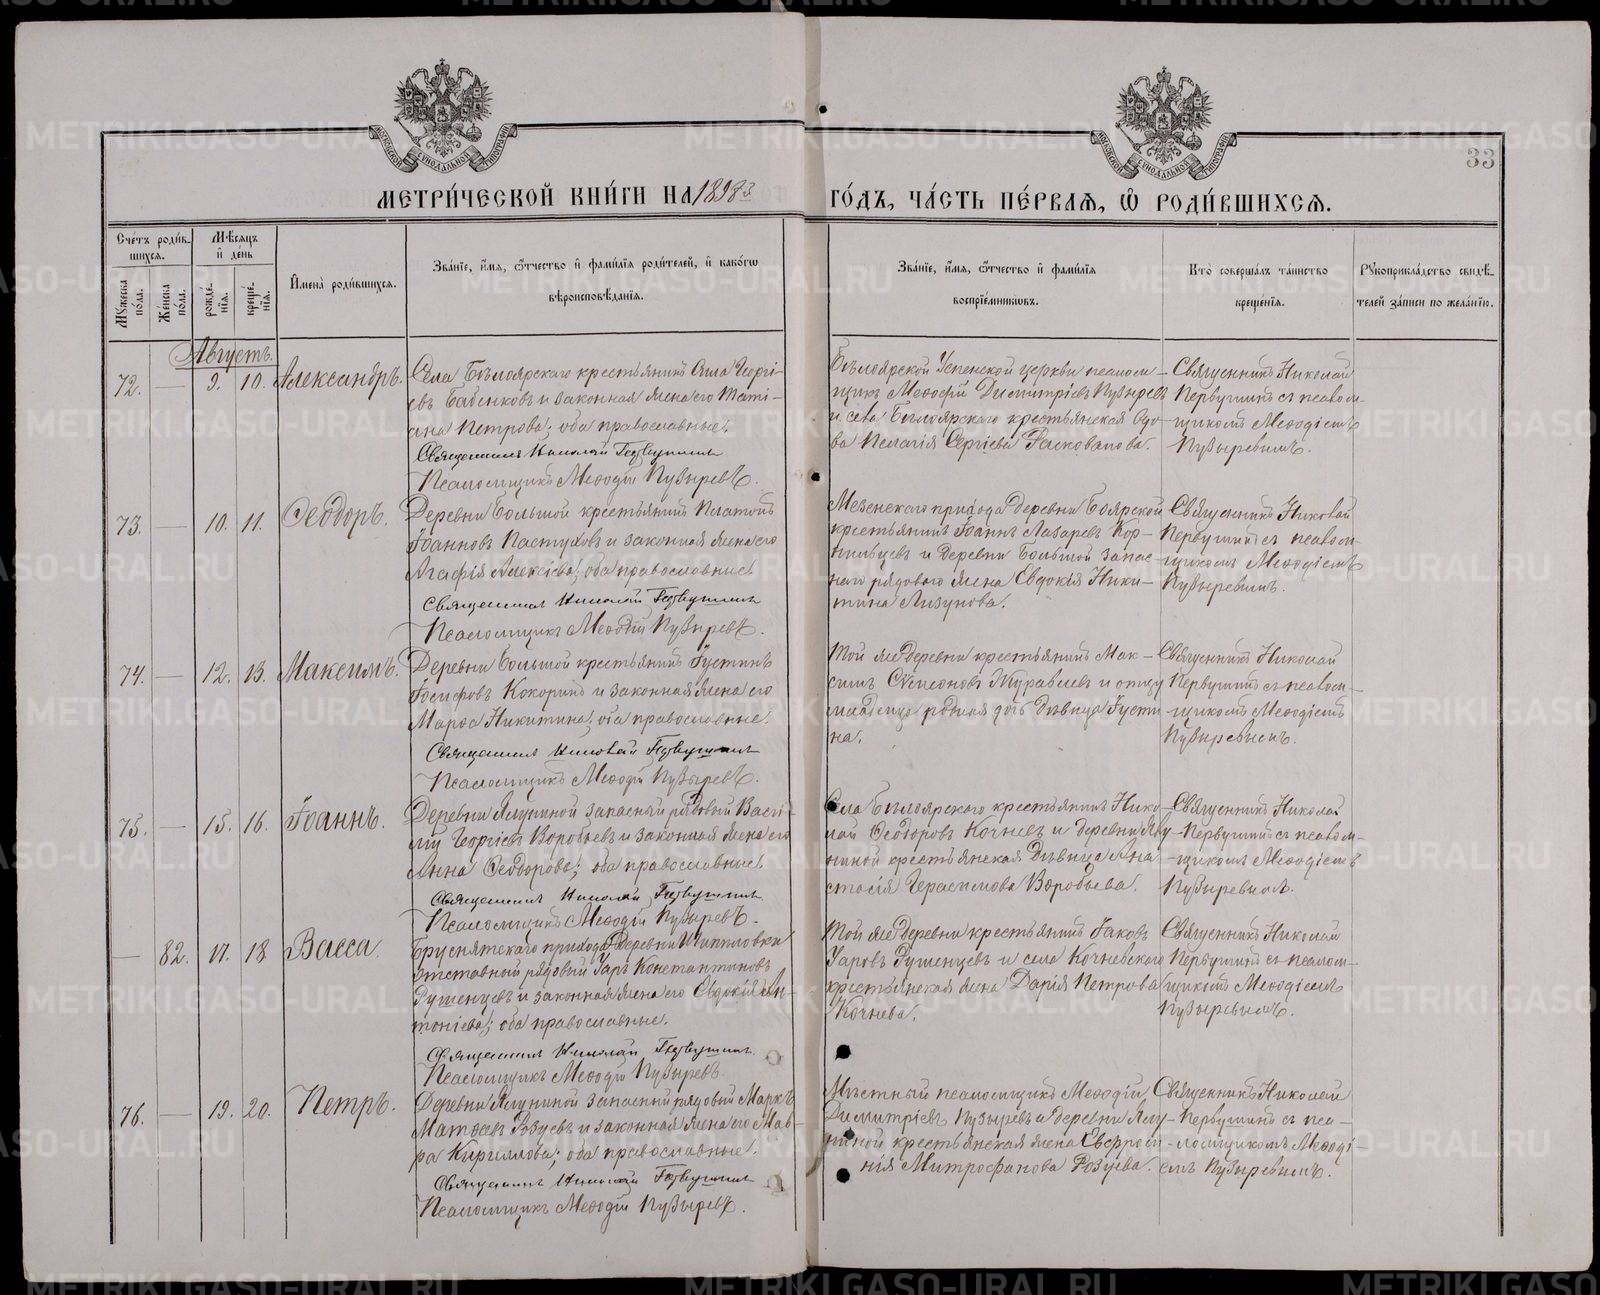 33
МЕТРИ́ЧЕСКОЙ КНИ́ГИ НА 1898
ГО́ДЪ, ЧА́СТЬ ПЕ́РВАЯ, Ѽ РОДИ́ВШИХСЯ.
Сче́тъ роди́в-
шихся.
Мѣ́сяцъ
и̑ де́нь
Му́жеска по́ла.
Же́нска по́ла.
рожде́нїя.
креще́нїя.
И̑мена̀ роди́вшихся.
Зва́нїе, и̑́мя, ѻ҆́тчество и̑ фами́лїя роди́телей, и̑ како́гѡ
вѣроисповѣ́данїя.
Зва́нїе, и̑́мя, ѻ҆́тчество и̑ фами́лїя
воспрїе́мниковъ.
Кто̀ соверша́лъ та́инство
креще́нїя.
Рꙋкоприкла́дство свидѣ́-
телей за́писи по жела́нїю.
Августъ.
72. — 9. 10. Александръ.
Села Бѣлоярскаго крестьянинъ Георгі-
евъ Бабенковъ и законная жена его Таті-
ана Петрова; оба православные.
Священникъ Николай Первушинъ
Псаломщикъ Меѳодій Пузыревъ.
Бѣлоярской Успенской церкви псалом-
щикъ Меѳодій Димитріевъ Пузыревъ
и села Бѣлоярскаго крестьянская вдо-
ва Пелагія Сергіева
Священникъ Николай
Первушинъ съ псалом-
щикомъ Меѳодіемъ
Пузыревымъ.
73. — 10. 11. Ѳеодоръ.
Деревни Большой крестьянинъ Платонъ
Іоанновъ Пастуховъ и законная жена его
Агафія Алексіева; оба православные.
Священникъ Николай Первушинъ
Псаломщикъ Меѳодій Пузыревъ.
Мезенскаго прихода деревни Боярской
крестьянинъ Іоаннъ Лазаревъ Кор-
нильцевъ и деревни Большой запас-
наго рядового жена Евдокія Ники-
тина Лизунова.
Священникъ Николай
Первушинъ съ псалом-
щикомъ Меѳодіемъ
Пузыревымъ.
74. — 12. 13. Максимъ.
Деревни Большой крестьянинъ Іустинъ
Іосифовъ Кокоринъ и законная жена его
Марѳа Никитина; оба православные.
Священникъ Николай Первушинъ
Псаломщикъ Меѳодій Пузыревъ.
Той же деревни крестьянинъ Мак-
симъ Симеоновъ Журавлевъ и отцу
младенца родная дочь дѣвица Іусти-
на.
Священникъ Николай
Первушинъ съ псалом-
щикомъ Меѳодіемъ
Пузыревымъ.
75. — 15. 16. Іоаннъ.
Деревни Ялуниной запасный рядовой Васи-
лій Георгіевъ Воробьевъ и законная жена его
Анна Ѳеодорова; оба православные.
Священникъ Николай Первушинъ
Псаломщикъ Меѳодій Пузыревъ.
Села Бѣлоярскаго крестьянинъ Нико-
лай Ѳеодоровъ Кочневъ и деревни Ялу-
ниной крестьянская дѣвица Ана-
стасія Герасимова Воробьева.
Священникъ Николай
Первушинъ съ псалом-
щикомъ Меѳодіемъ
Пузыревымъ.
— 82. 17. 18 Васса.
Бруснятскаго прихода деревни Шипиловки
отставной рядовый Уаръ Константиновъ
Рушенцевъ и законная жена его Евдокія Ан-
тоніева; оба православные.
Священникъ Николай Первушинъ.
Псаломщикъ Меѳодій Пузыревъ
Той же деревни крестьянинъ Іаковъ
Уаровъ Рушенцевъ и села Кочневскаго
крестьянская жена Дарія Петрова
Кочнева.
Священникъ Николай
Первушинъ съ псалом-
щикомъ Меѳодіемъ
Пузыревымъ.
76. — 19. 20. Петръ.
Деревни Ялуниной запасный рядовый Маркъ
Матѳеевъ Розуевъ и законная жена его Мав-
ра Кириллова; оба православные.
Священникъ Николай Первушинъ
Псаломщикъ Меѳодій Пузыревъ.
Мѣстный псаломщикъ Меѳодій
Димитріевъ Пузыревъ и деревни Ялу-
ниной крестьянская жена Евфроси-
нія Митрофанова Розуева.
Священникъ Николай
Первушинъ съ пса-
ломщикомъ Меѳоді-
емъ Пузыревымъ.
METRIKI.GASO-URAL.RU